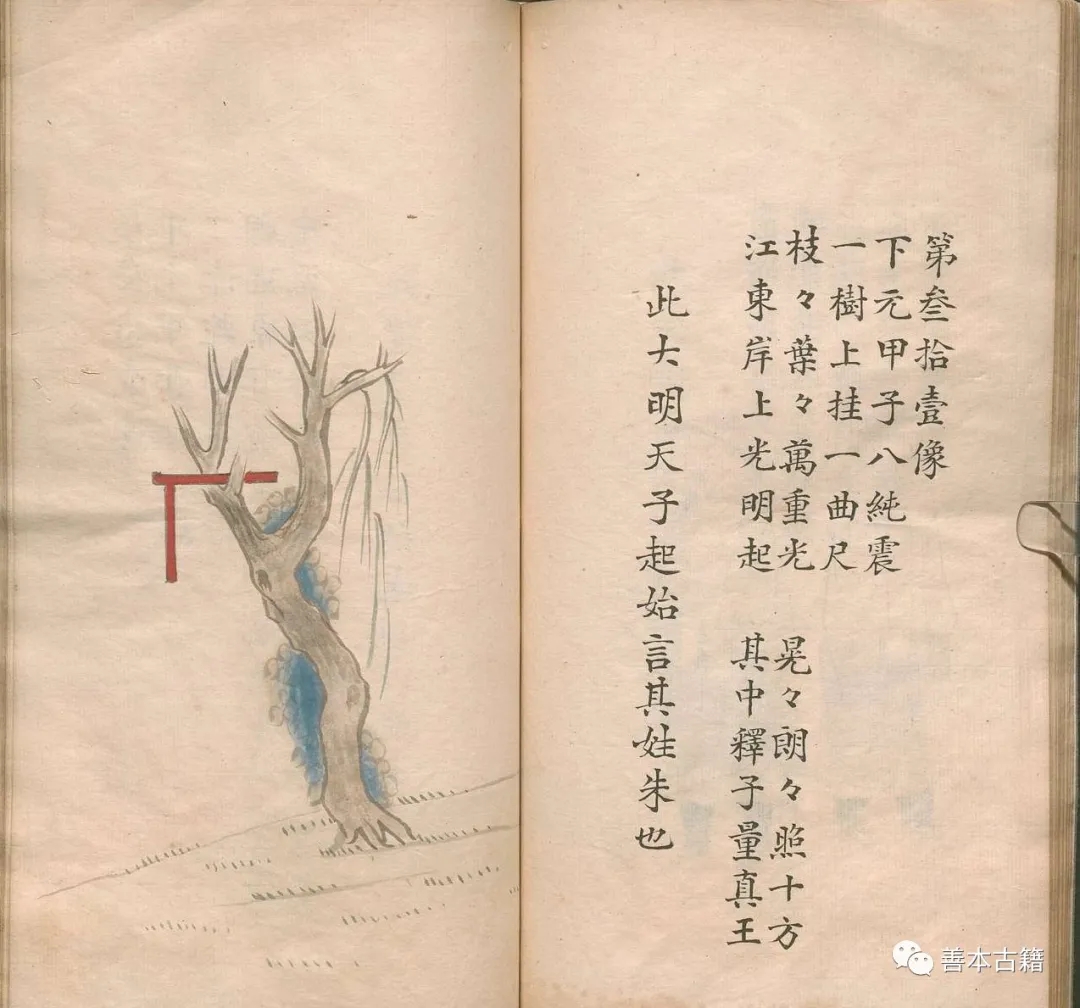 第叁拾壹像
下元甲子八純震
一樹上挂一曲尺
枝々葉々萬重光 晃々朗々照十方
江東岸上光明起 其中釋子量真王
此大明天子起始言其姓朱也
善本古籍